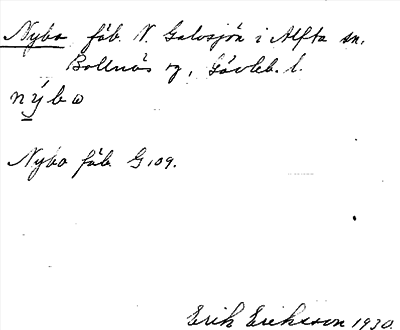 Nybo fäb. N. Galvsjön i Alfta sn.
Bollnäs rg, Gävleb. l.
nýbω
Nybo fäb. G 109.
Erik Eriksson 1930.